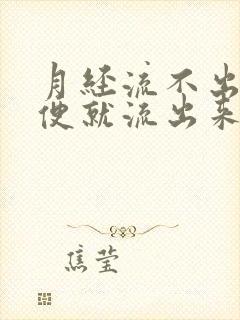 月经流不出
便就流出来
焦莹